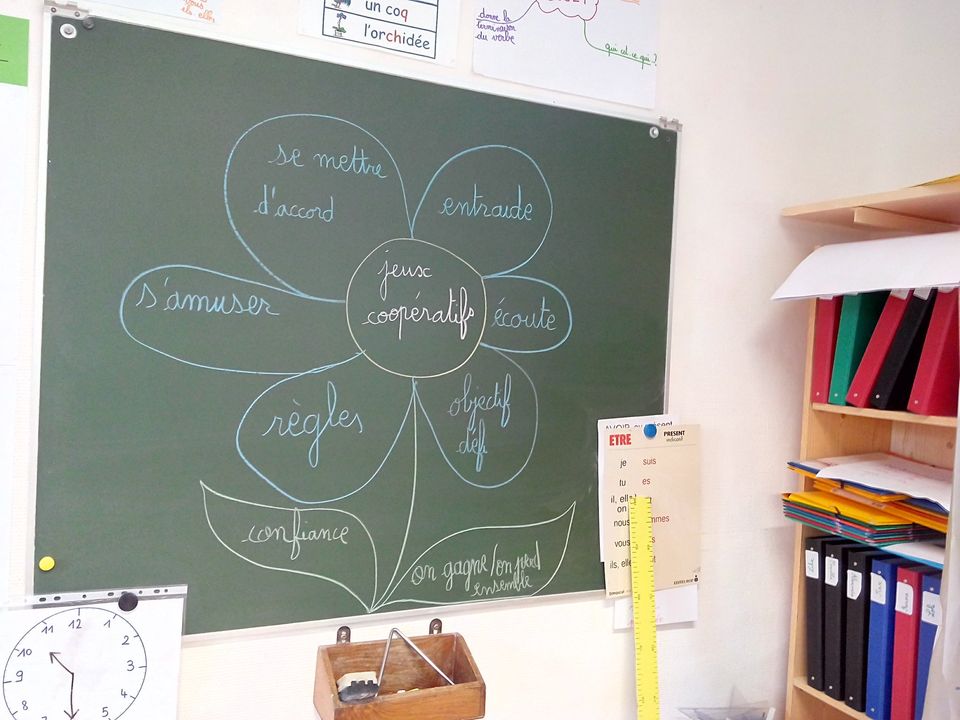 un coq
l'orchidée
donne la
terminaison
du verbe
qui est-ce qui ?
se mettre
d'accord
entraide
s'amuser
jeux
coopératifs
écoute
règles
objectif
défi
confiance
on gagne/on perd
ensemble
ETRE
PRESENT
indicatif
je suis
tu es
il, elle
on
nous
vous
ils, elle
11 12 1
10 2
9 3
8 4
5